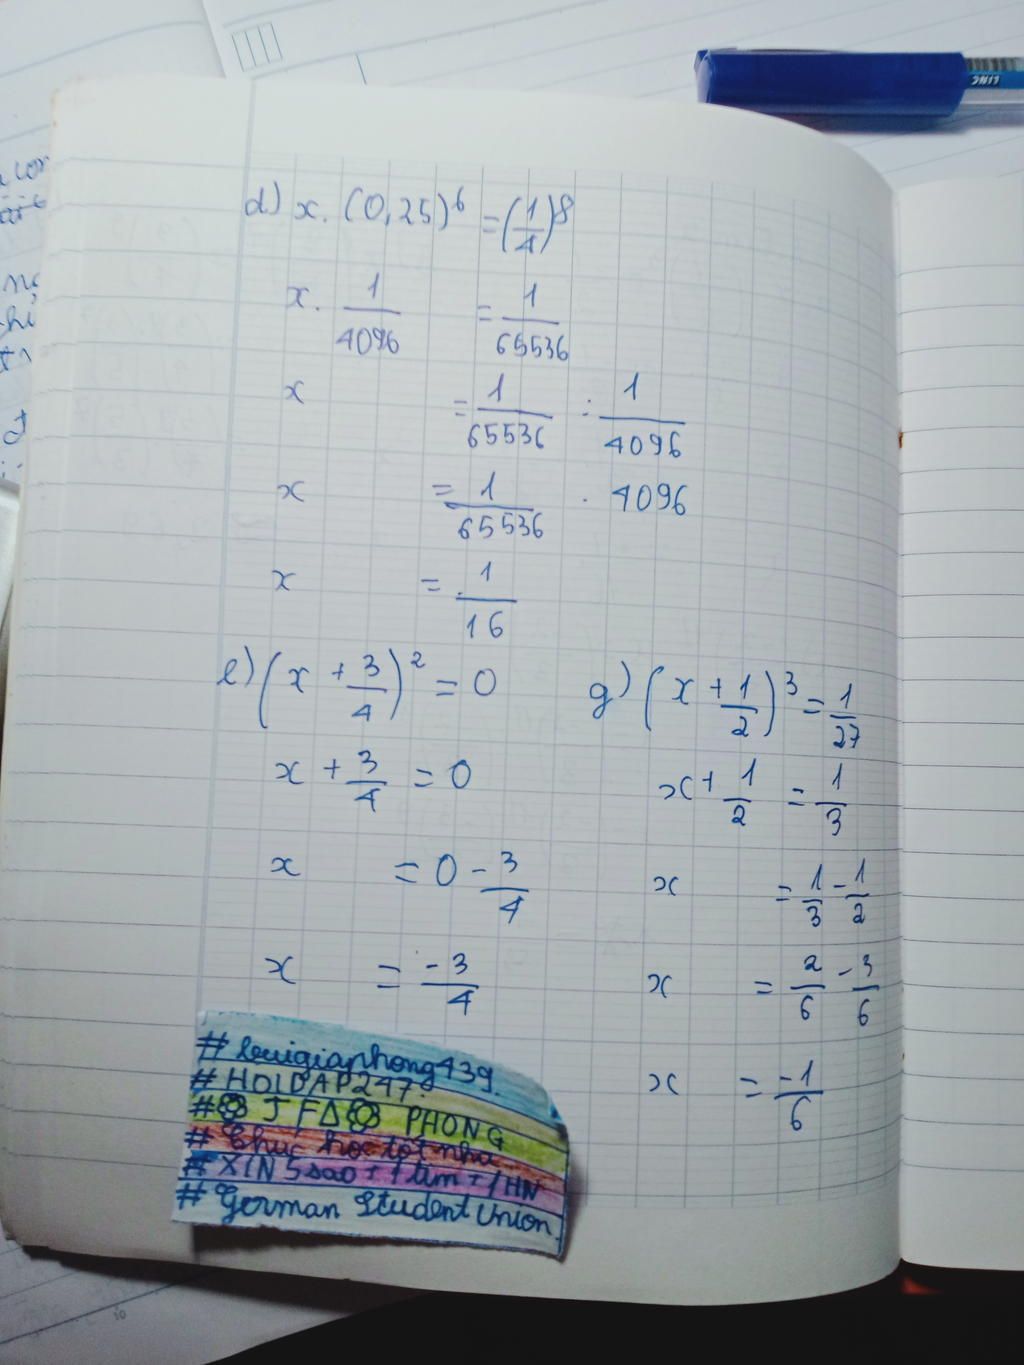 d) x. (0,25)^6 = (1/4)^8
x. 1/4096 = 1/65536
x = 1/65536 : 1/4096
x = 1/65536 . 4096
x = 1/16
e) (x + 3/4)^2 = 0
x + 3/4 = 0
x = 0 - 3/4
x = -3/4
g) (x + 1/2)^3 = 1/27
x + 1/2 = 1/3
x = 1/3 - 1/2
x = 2/6 - 3/6
x = -1/6
# buigiaphong439.
# HOIDAP247.
# J F∆ PHONG
# Chúc học tốt nha
# XIN 5 sao + 1 tim + 1 HN
# German Student Union.
LINC